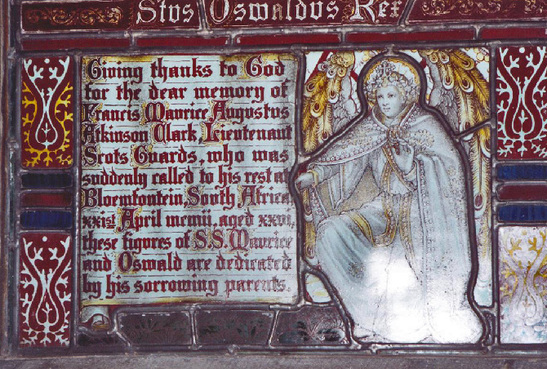 Stvs Oswaldvs Rex
Giving thanks to God
for the dear memory of
Francis Mavrice Avgvstvs
Atkinson Clark Lievtenant
Scots Gvards, who was
svddenly called to his rest at
Bloemfontein, Sovth Africa,
xxist April mcmii, aged xxvi,
these figvres of S.S. Mavrice
and Oswald are dedicated
by his sorrowing parents.